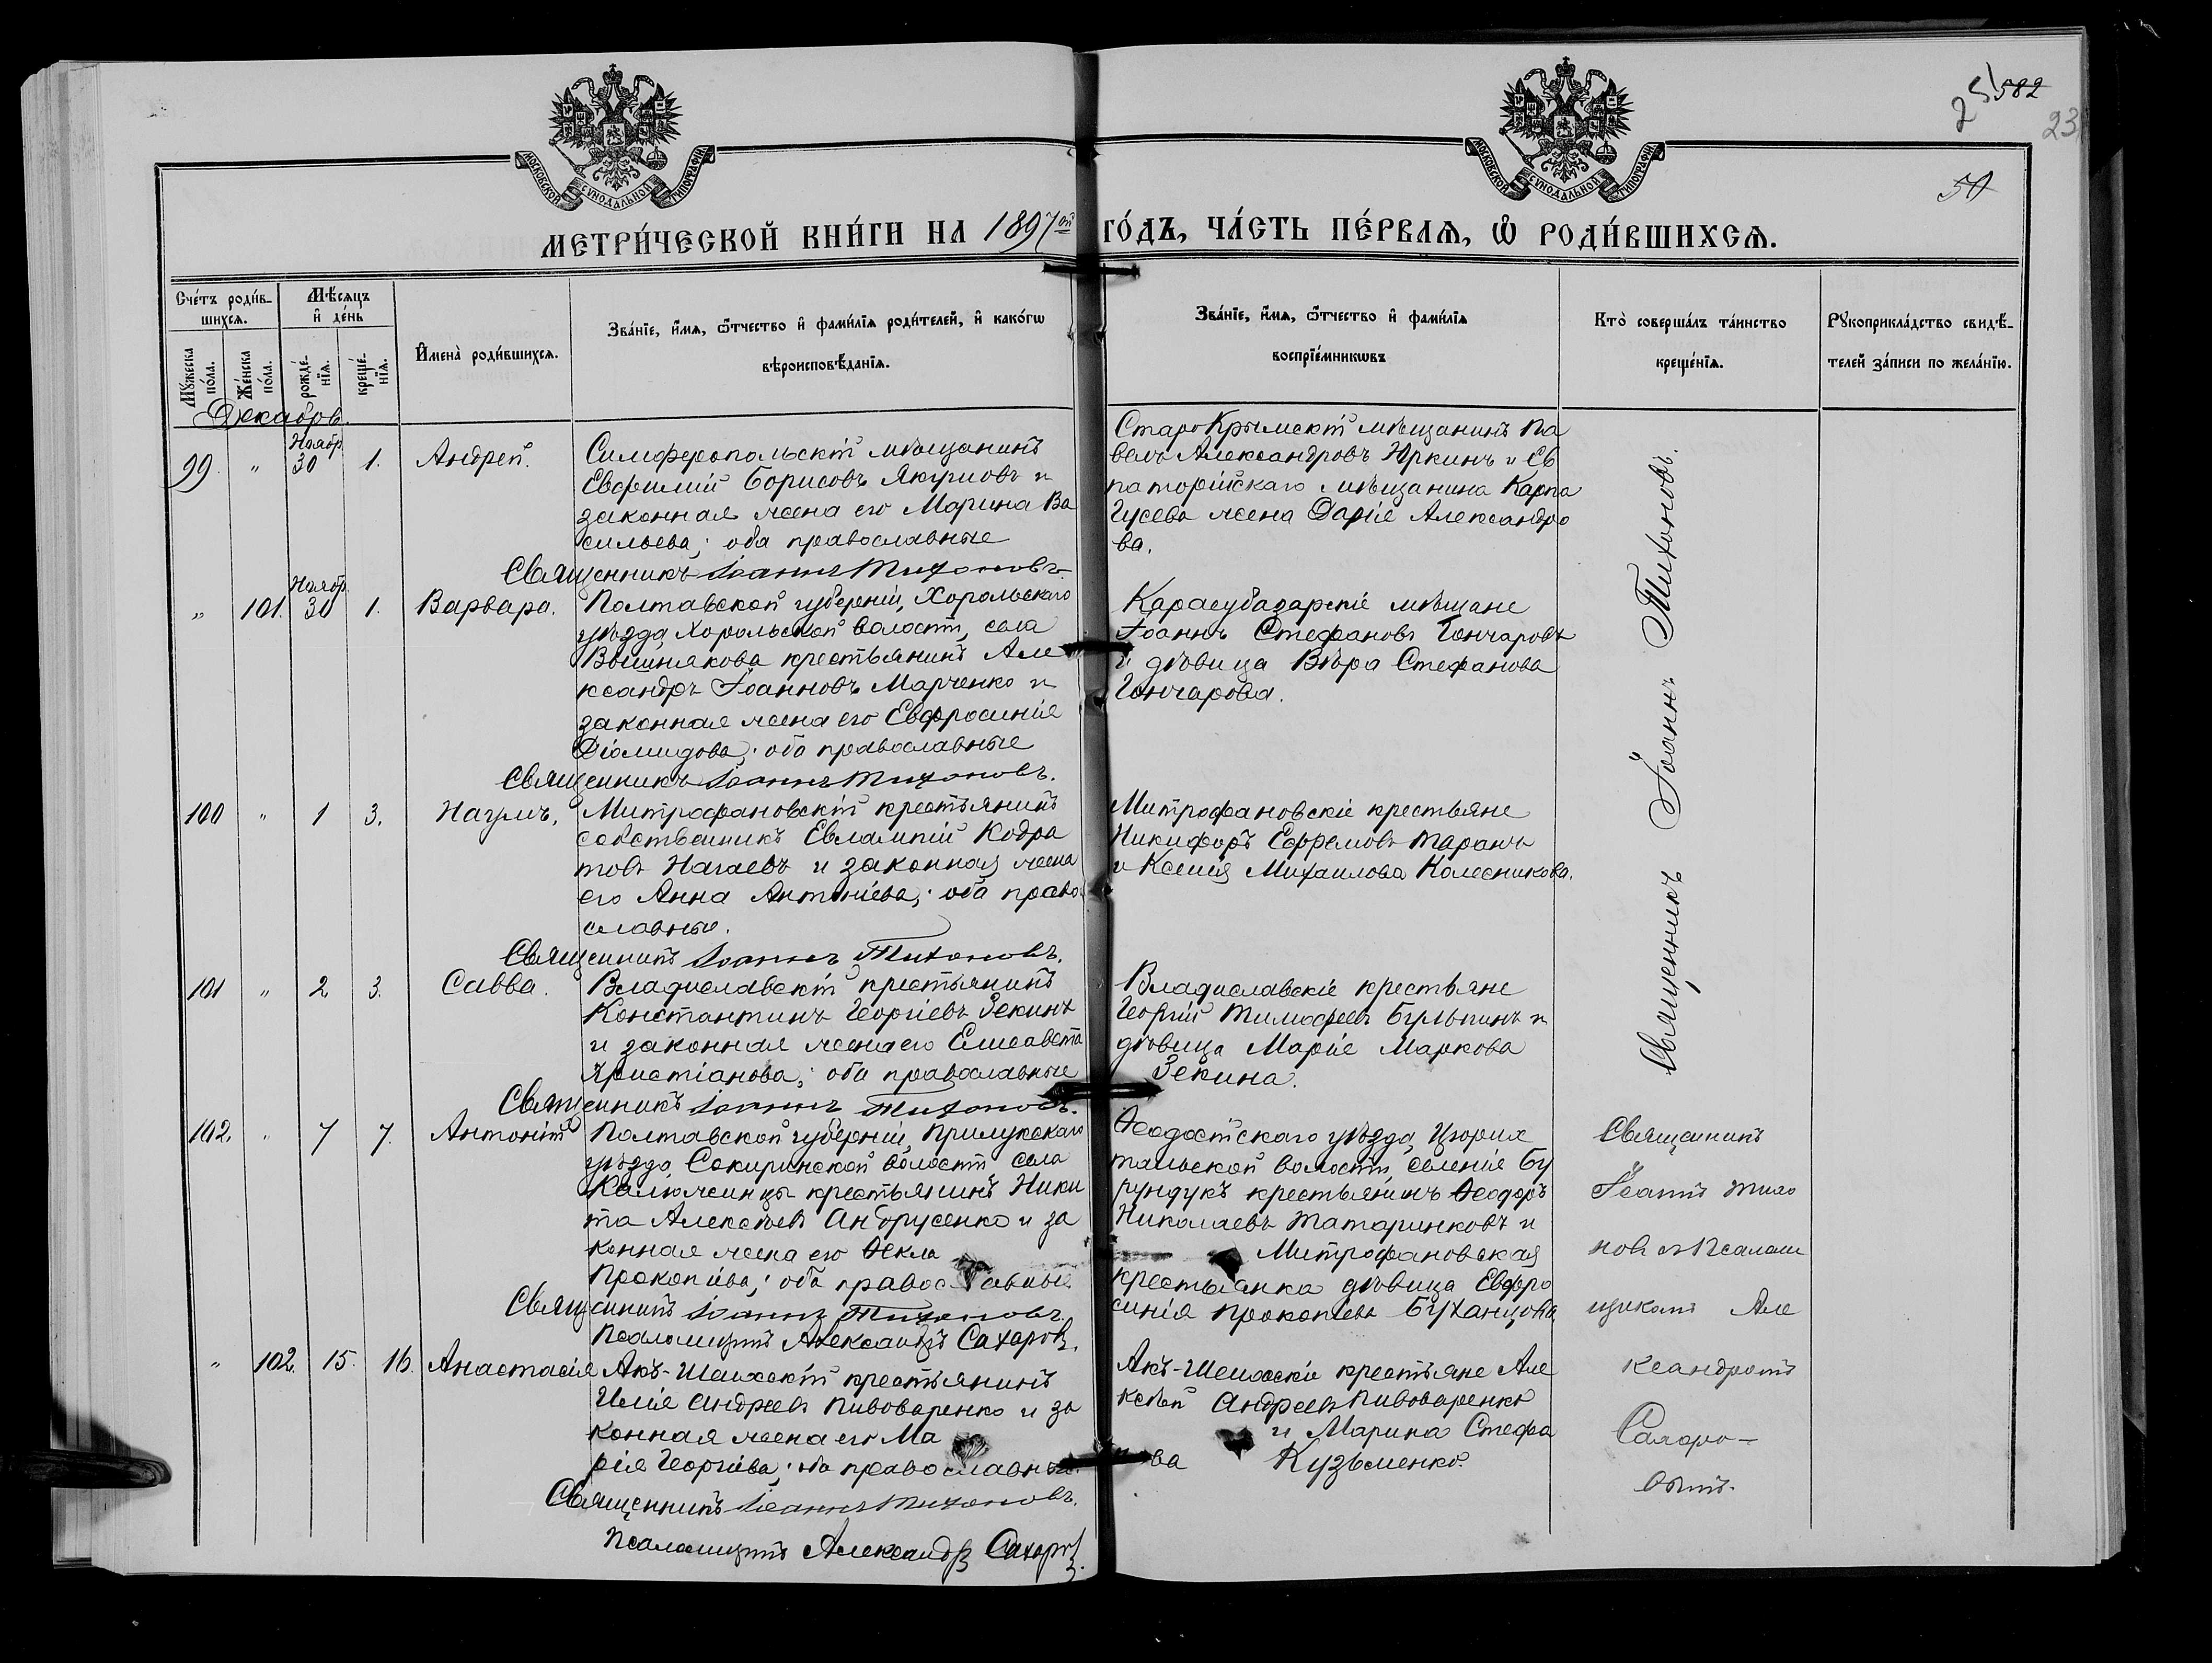 25 582
23
50
МОСКОВСКОЙ СѴНОДАЛЬНОЙ ТИПОГРАФІИ
МОСКОВСКОЙ СѴНОДАЛЬНОЙ ТИПОГРАФІИ
МЕТРИ́ЧЕСКОЙ КНИ́ГИ НА 1897ой ГО́ДЪ, ЧА́СТЬ ПЕ́РВАѦ, Ѽ РОДИ́ВШИХСѦ.
Сче́тъ роди́в-
шихсѧ.
Мꙋ́жеска по́ла.
Же́нска по́ла.
Мѣ́сѧцъ
и҆ де́нь
рожде́-
нїѧ.
креще́-
нїѧ.
И҆мена̀ роди́вшихсѧ.
Зва́нїе, и҆́мѧ, ѻ҆́тчество и҆ фами́лїѧ роди́телей, и҆ како́гѡ
вѣроисповѣ́данїѧ.
Зва́нїе, и҆́мѧ, ѻ҆́тчество и҆ фами́лїѧ
воспрїе́мникѡвъ
Кто̀ соверша́лъ та́инство
креще́нїѧ.
Рꙋкоприкла́дство свидѣ́-
телей за́писи по жела́нїю.
Декабрь.
99. " Ноябр. 30 1. Андрей.
Симферопольскій мѣщанинъ
Евфимій Борисовъ Якуповъ и
законная жена его Марина Ва
сильева; оба православные
Священникъ Іоаннъ Тихоновъ.
Старо Крымскій мѣщанинъ Па
велъ Александровъ Юркинъ и Ев
паторійскаго мѣщанина Карпа
Гусева жена Дарія Александро
ва.
" 101. Ноябр. 30 1. Варвара.
Полтавской губерніи, Хорольскаго
уѣзда Хорольской волости, села
Вишнякова крестьянинъ Але
ксандръ Іоанновъ Марченко и
законная жена его Евфросинія
Діомидова; оба православные
Священникъ Іоаннъ Тихоновъ.
Карасубазарскіе мѣщане
Іоаннъ Стефановъ Гончаровъ
и дѣвица Вѣра Стефанова
Гончарова.
100 " 1 3. Наумъ.
Митрофановскій крестьянинъ
собственникъ Евлампій Кодра
товъ Нагаевъ и законная жена
его Анна Антоніева; оба право
славные.
Священникъ Іоаннъ Тихоновъ.
Митрофановскіе крестьяне
Никифоръ Ефремовъ Таранъ
и Ксенія Михаилова Колесникова.
101 " 2 3. Савва.
Владиславскій крестьянинъ
Константинъ Георгіевъ Зекинъ
и законная жена его Елисавета
Христіанова; оба православные
Священникъ Іоаннъ Тихоновъ.
Владиславскіе крестьяне
Георгій Тимофеевъ Булыгинъ и
дѣвица Марія Маркова
Зекина.
Священникъ Іоаннъ Тихоновъ.
102. " 7 7. Антоній
Полтавской губерніи, Прилукскаго
уѣзда, Сокиринской волости села
Калюжинцы крестьянинъ Ники
та Алексѣевъ Андрусенко и за
конная жена его Ѳекла
Прокопіева; оба православные
Священникъ Іоаннъ Тихоновъ.
Псаломщикъ Александръ Сахаровъ.
Ѳеодосійскаго уѣзда, Цюрих
тальской волости, селенія Бу
рундукъ крестьянинъ Ѳеодоръ
Николаевъ Татаринковъ и
Митрофановская
крестьянка дѣвица Евфро
синія Прокопіева Буханцова
Священникъ
Іоаннъ Тихо
новъ съ Псалом
щикомъ Але
ксандромъ
Сахаро-
вымъ.
" 102. 15. 16. Анастасія
Акъ-Шеихскій крестьянинъ
Илія Андреевъ Пивоваренко и за
конная жена его Ма
рія Георгіева; оба православные.
Священникъ Іоаннъ Тихоновъ.
Псаломщикъ Александръ Сахаровъ.
Акъ-Шеихскіе крестьяне Але
ксѣй Андреевъ Пивоваренко
и Марина Стефа
нова Кузьменко.